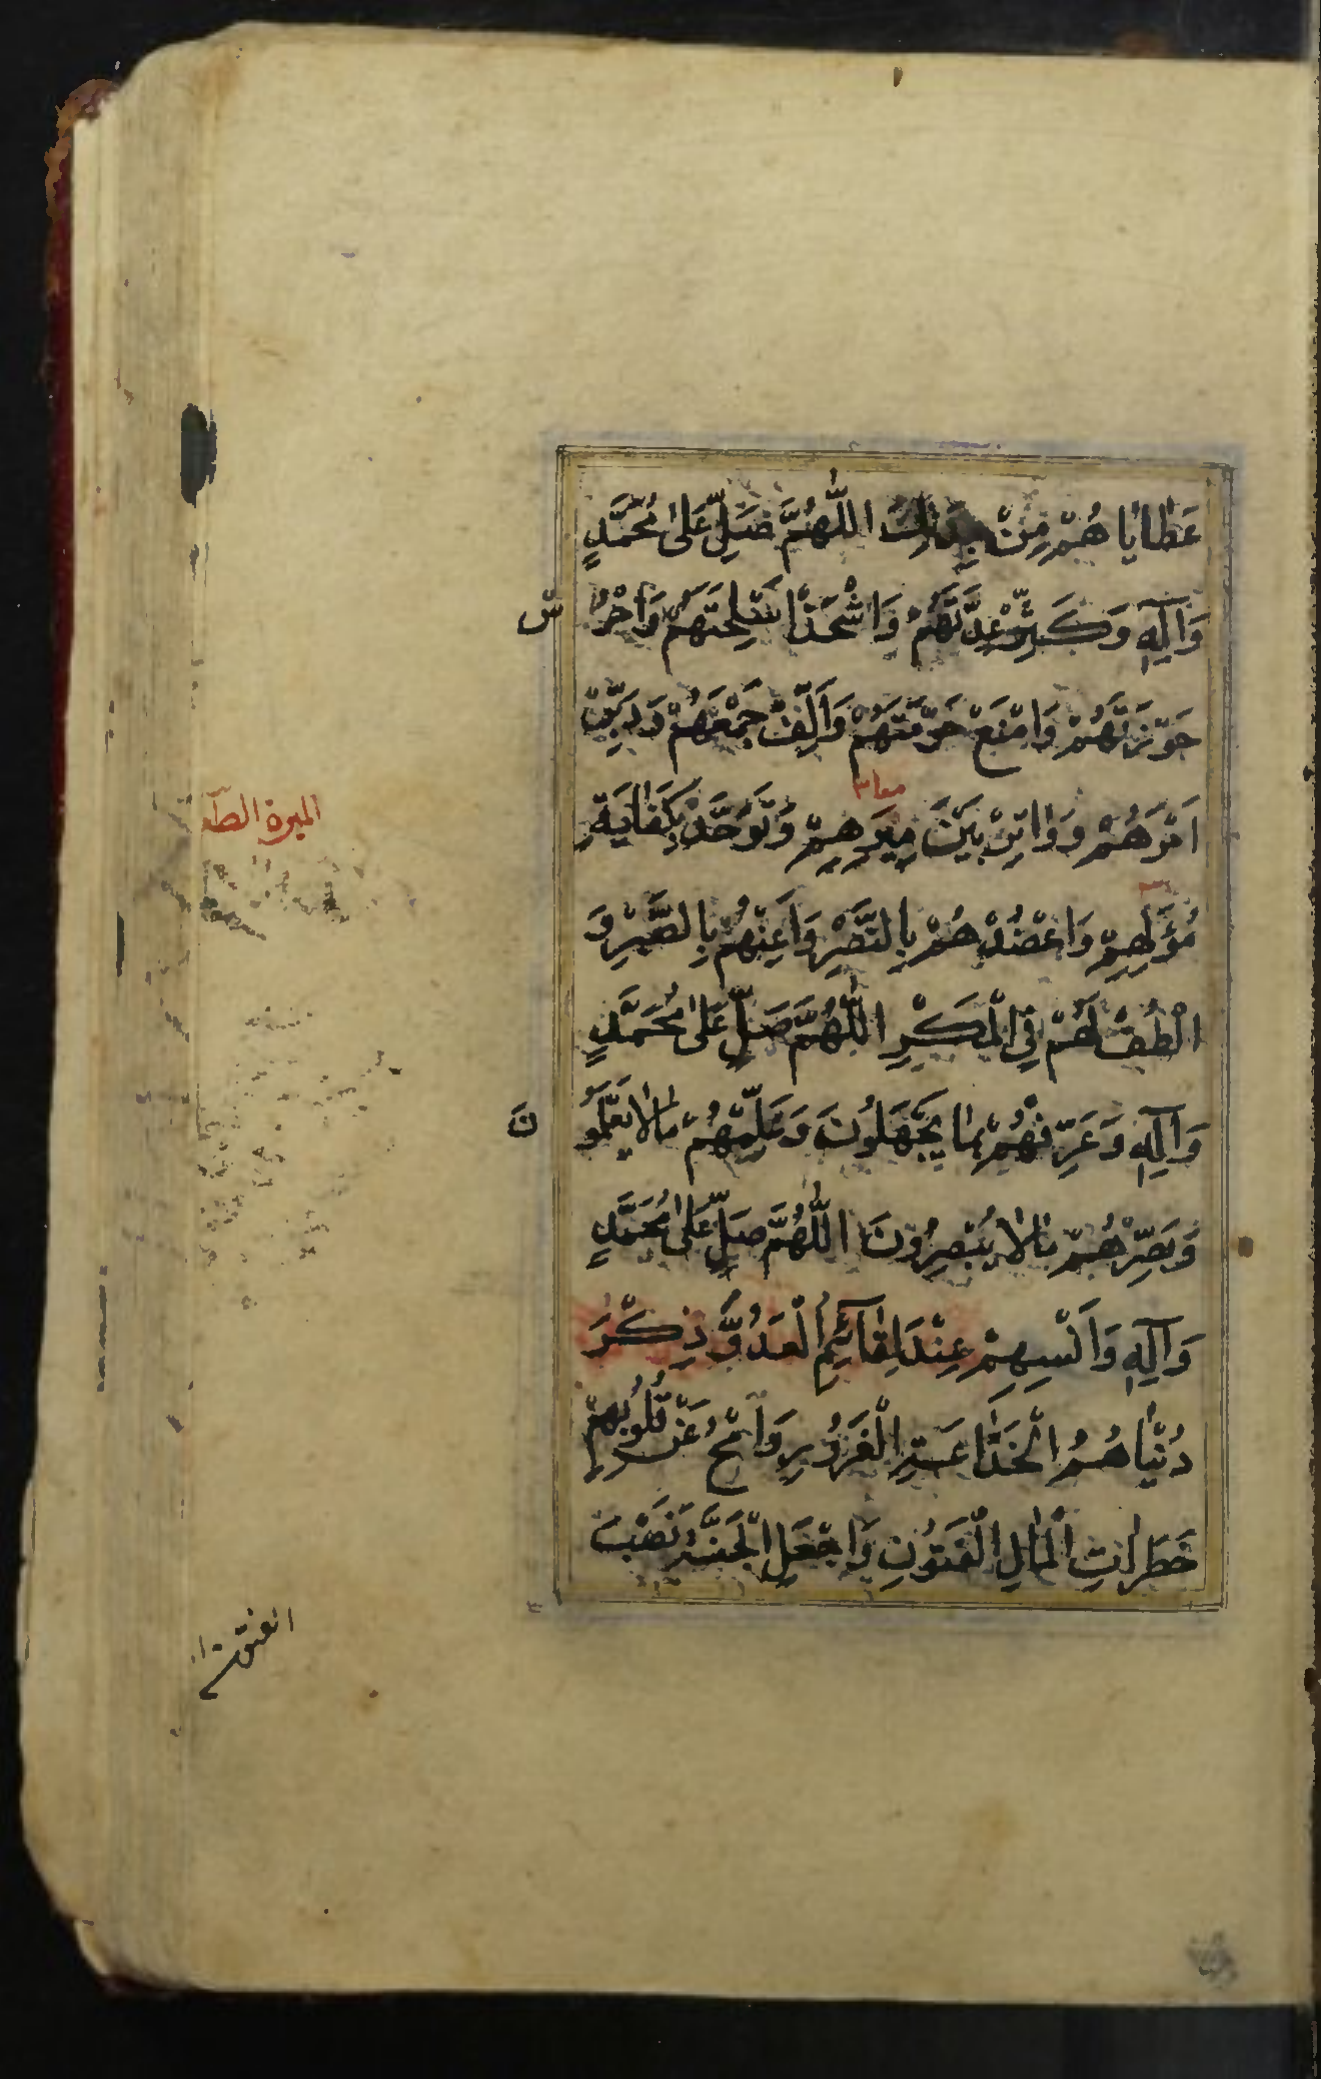 عَطَايَا هُمْ مِنْ جِدَتِكَ اللَّهُمَّ صَلِّ عَلَى مُحَمَّدٍ
وَآلِهِ وَكَثِّرْ عِدَّتَهُمْ وَاشْحَذْ اَسْلِحَتَهُمْ وَاحْرُسْ
حَوْزَتَهُمْ وَامْنَعْ حَوْمَتَهُمْ وَاَلِّفْ جَمْعَهُمْ وَدَبِّرْ
اَمْرَهُمْ وَوَاتِرْ بَيْنَ مِيَرِهِمْ وَتَوَحَّدْ بِكِفَايَةِ
مُؤَنِهِمْ وَاعْضُدْ هُمْ بِالنَّصْرِ وَاَعِنْهُمْ بِالصَّبْرِ وَ
الْطُفْ لَهُمْ فِي الْمَكْرِ اللَّهُمَّ صَلِّ عَلَى مُحَمَّدٍ
وَآلِهِ وَعَرِّفْهُمْ مَا يَجْهَلُونَ وَعَلِّمْهُمْ مَا لَا يَعْلَمُونَ
وَبَصِّرْهُمْ مَا لَا يُبْصِرُونَ اللَّهُمَّ صَلِّ عَلَى مُحَمَّدٍ
وَآلِهِ وَاَنْسِهِمْ عِنْدَ لِقَائِهِمُ الْعَدُوَّ ذِكْرَ
دُنْيَاهُمُ الْخَدَّاعَةِ الْغَرُورِ وَامْحُ عَنْ قُلُوبِهِمْ
خَطَرَاتِ الْمَالِ الْفَتُونِ وَاجْعَلِ الْجَنَّةَ نَصْبَ
الميرة الطعا